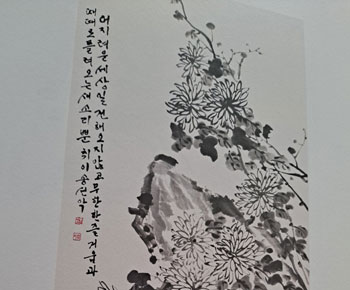 어지러운 세상일 전해오지 않고 무한한 즐거움과
때때로 들려오는 새소리 뿐